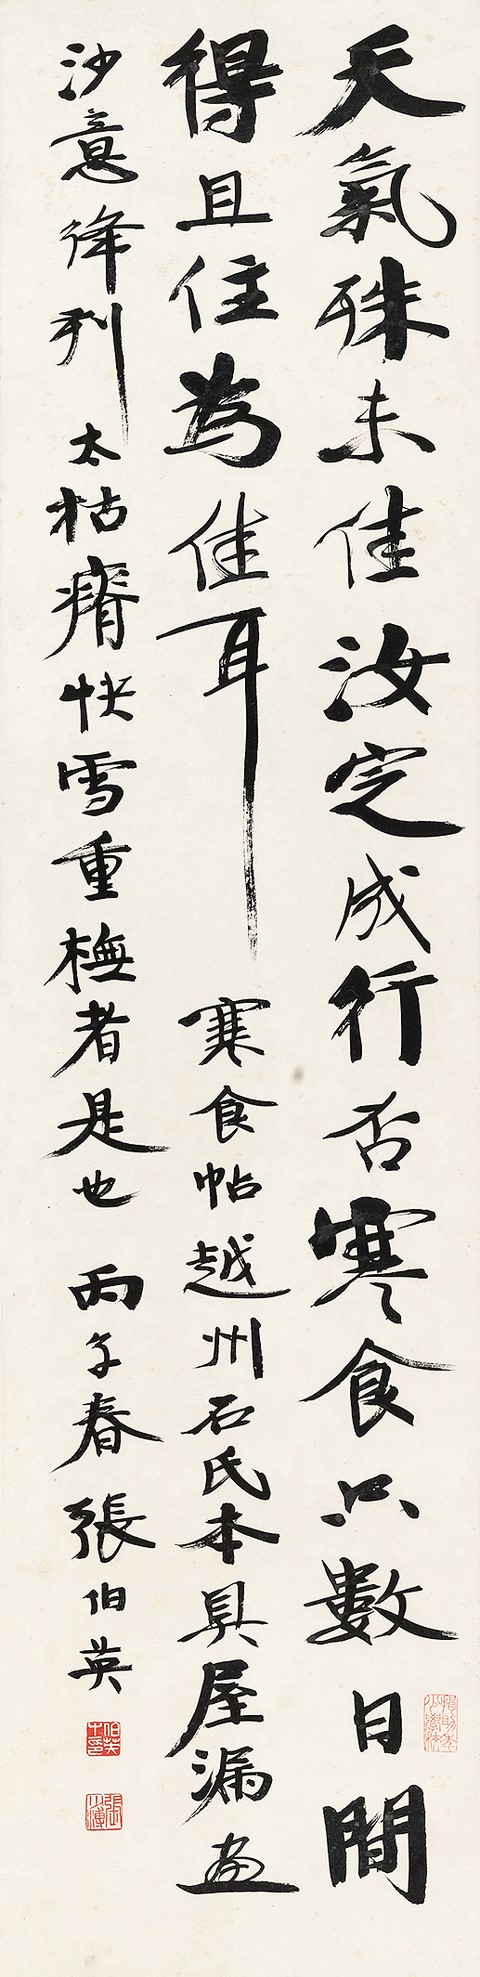 天氣殊未佳汝定成行否寒食只數日間
得且住為佳耳 寒食帖越州石氏本具屋漏畫
沙意絳刻太枯瘠快雪重橅者是也 丙子春張伯英